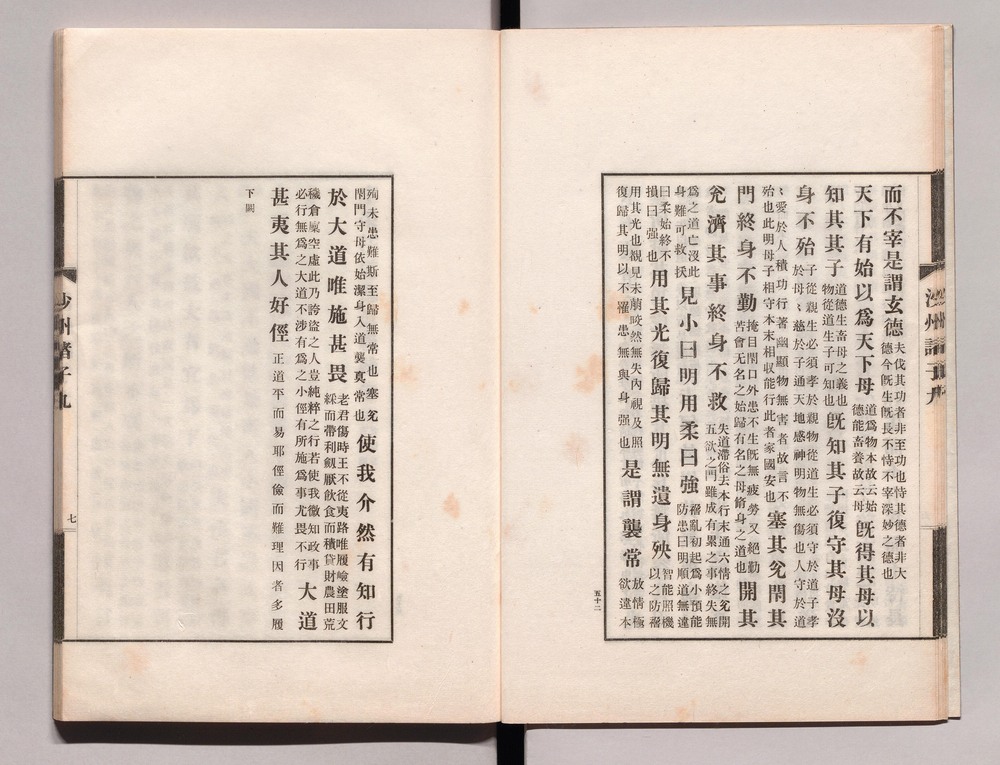 沙州諸子九
而不宰是謂玄德
夫伐其功者非至功也恃其德者非大
德今旣生旣長不恃不宰深妙之德也
天下有始以爲天下母
道爲物本故云始
德能畜養故云母
旣得其母以
知其其子
道德生畜母之義也
物從道生子可知也
旣知其子復守其母沒
身不殆
子從親生必須孝於親物從道生必須守於道子孝
於母〻慈於子通天地感神明物無傷也人守於道
〻愛於人積功行著幽顯物無害者故言不
殆也此明母子相守本末相収能行此者家國安也
塞其兊閇其
門終身不勤
掩目閇口外患不生旣無疲勞又絕勤
苦會无名之始歸有名之母脩身之道也
開其
兊濟其事終身不救
失道滯俗去本行末通六情之兊開
五欲之門雖成有累之事終失無
爲之道亡沒此
身難可救扶
見小曰明用柔曰強
禍亂初起爲小預能
防患曰明順道無違
曰柔始終不
損曰强也
用其光復歸其明無遺身殃
智能照機
以之防禍
用其光也観見未萌咬然無失內視及照
復歸其明以不罹患無與身强也
是謂襲常
放情極
欲違本
五十二
殉末患難斯至歸無常也塞兊
閇門守母依始潔身入道襲真常也
使我介然有知行
於大道唯施甚畏
老君傷時王不從夷路唯履嶮塗服文
綵而帶利劔厭飲食而積貨財農田荒
穢倉廩空虛此乃誇盜之人豈純粹之行若使我徵知政事
必行無爲之大道不涉有爲之小俓有所施爲事尤畏不行
大道
甚夷其人好俓
正道平而易耶俓儉而難理因者多履
下闕
沙州諸子九
七